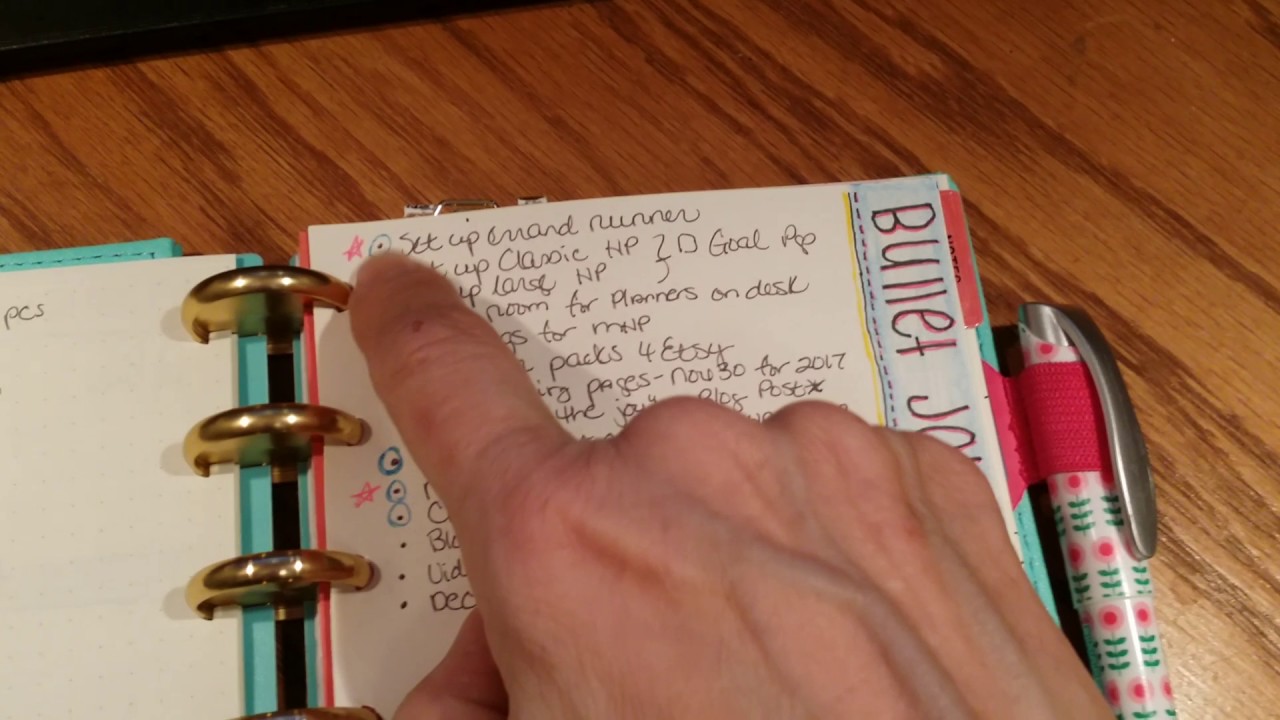 pcs
Set up errand runner
up Classic HP } □ Goal Pop
up large HP
room for planners on desk
gs for mHP
packs 4 Etsy
ing pages - now 30 for 2017
the joy Blog Post*
C
Blo
Vid
Dec
BUllet JO
NOTES